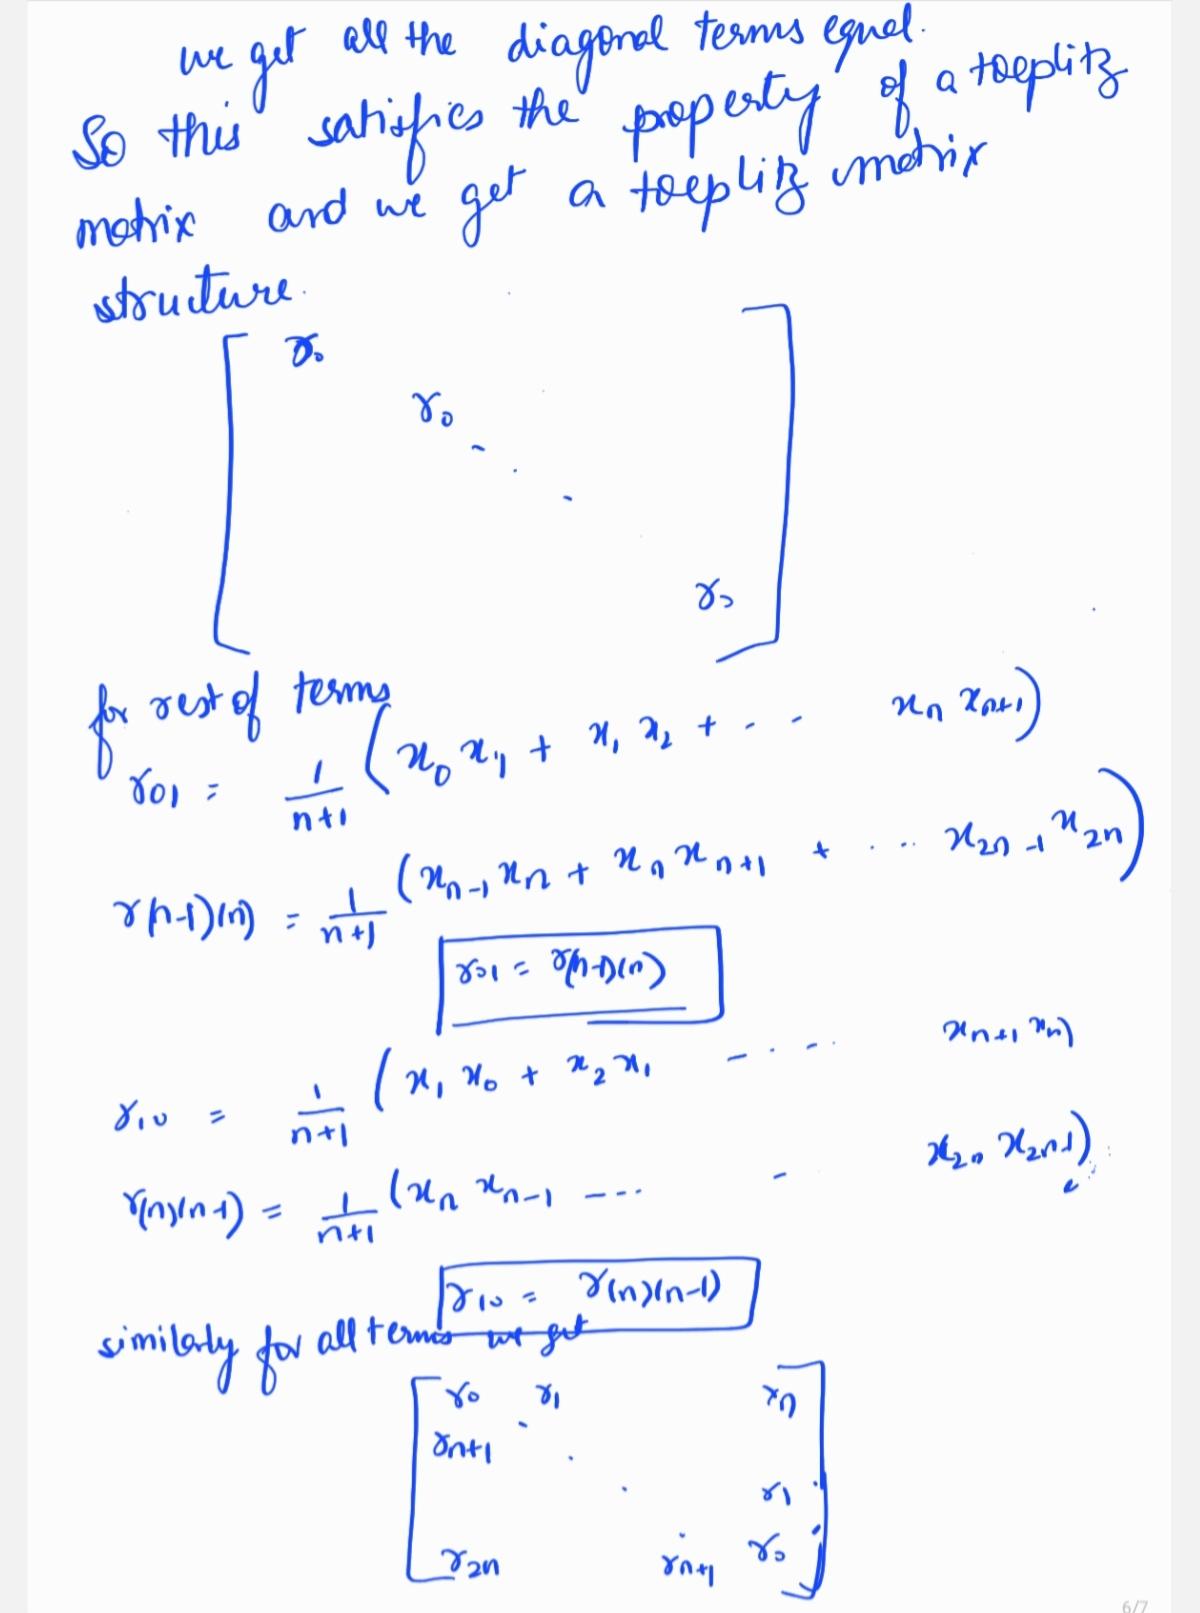 we get all the diagonal terms equal.
So this satisfies the property of a toeplitz
matrix and we get a toeplitz matrix
structure.
r₀
r₀
r₀
for rest of terms
r₀₁ = 1/(n+1) (x₀ x₁ + x₁ x₂ + . . - xₙ xₙ₊₁)
r(n-1)(n) = 1/(n+1) (xₙ₋₁ xₙ + xₙ xₙ₊₁ + . .. x₂ₙ₋₁ x₂ₙ)
r₀₁ = r(n-1)(n)
r₁₀ = 1/(n+1) (x₁ x₀ + x₂ x₁ - . - . xₙ₊₁ xₙ)
r(n)(n-1) = 1/(n+1) (xₙ xₙ₋₁ --.. - x₂ₙ x₂ₙ₋₁)
r₁₀ = r(n)(n-1)
similarly for all terms we get
r₀ r₁ rₙ
rₙ₊₁
r₁
r₂ₙ rₙ₊₁ r₀
6/7